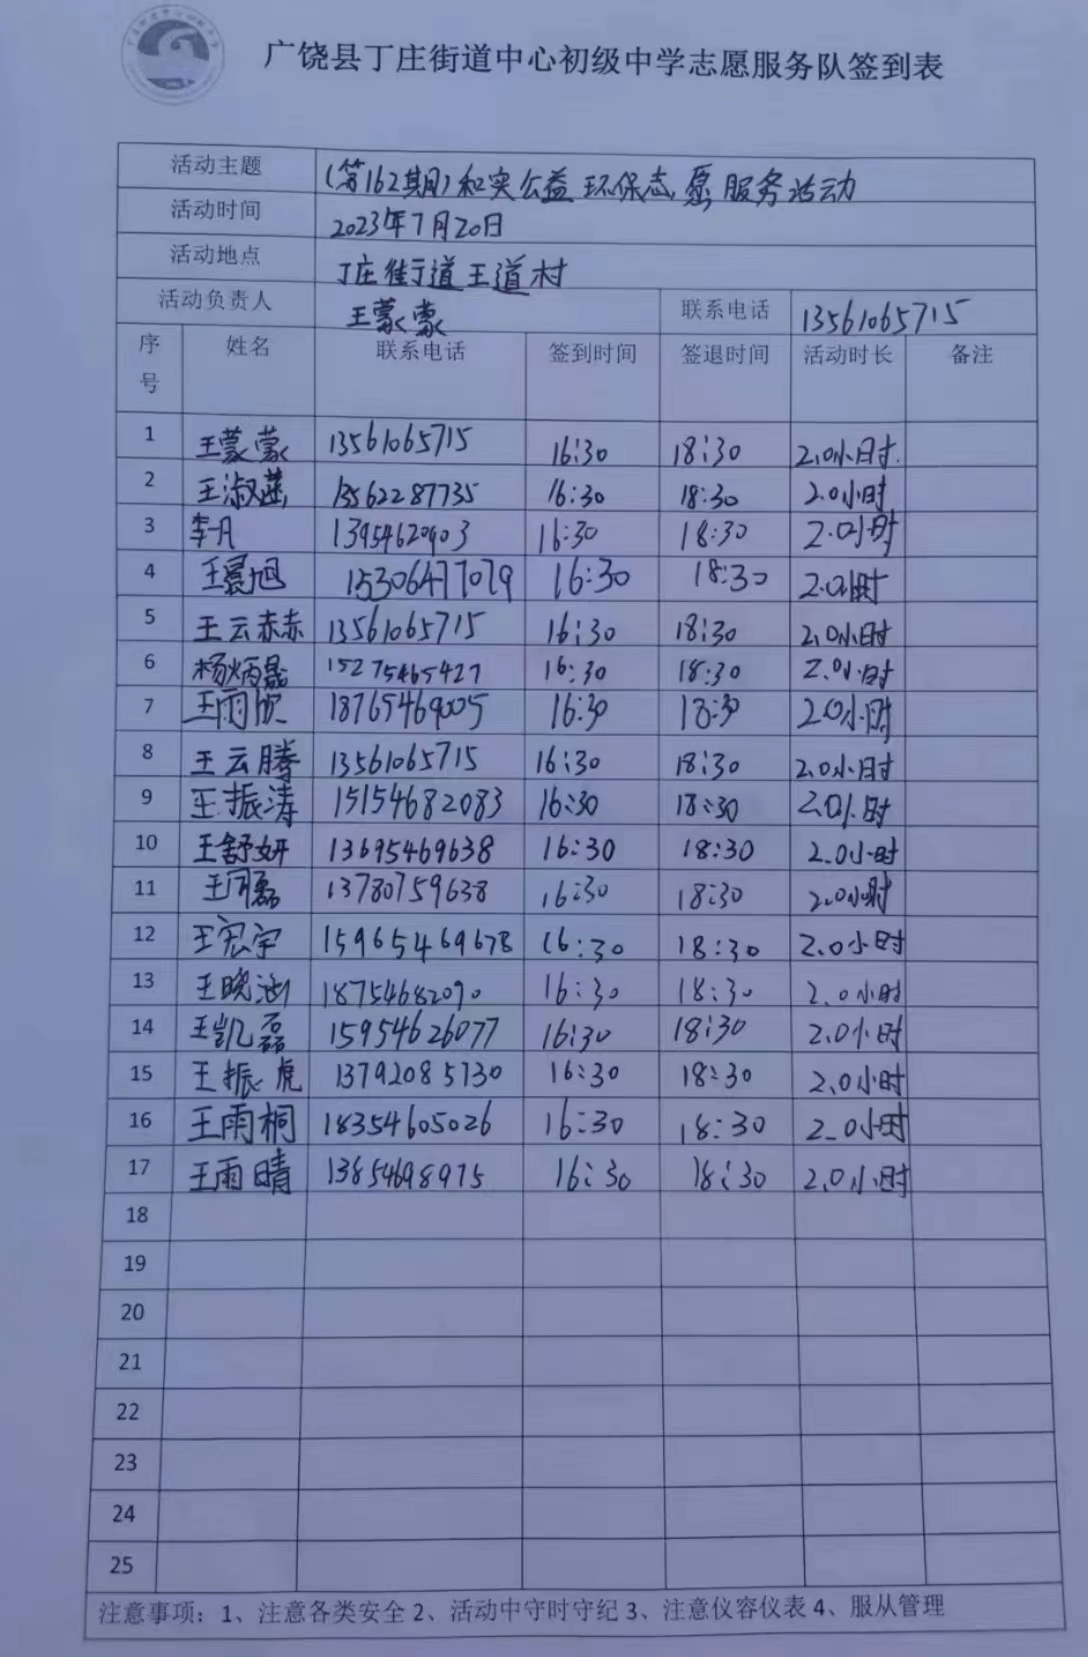 广饶县丁庄街道中心初级中学志愿服务队签到表
活动主题 (第162期)和实公益环保志愿服务活动
活动时间 2023年7月20日
活动地点 丁庄街道王道村
活动负责人 王蒙蒙 联系电话 13561065715
序号 姓名 联系电话 签到时间 签退时间 活动时长 备注
1 王蒙蒙 13561065715 16:30 18:30 2.0小时.
2 王淑菡 13562287735 16:30 18:30 2.0小时
3 李一凡 13954620903 16:30 18:30 2.0小时
4 15306477079 16:30 18:30 2.0小时
5 王云赫 13561065715 16:30 18:30 2.0小时
6 杨炳晟 15275465427 16:30 18:30 2.0小时
7 王雨欣 18765469005 16:30 18:30 2.0小时
8 王云腾 13561065715 16:30 18:30 2.0小时
9 王振涛 15154682083 16:30 18:30 2.0小时
10 王舒妍 13695469638 16:30 18:30 2.0小时
11 13780759638 16:30 18:30 2.0小时
12 王宏宇 15965469678 16:30 18:30 2.0小时
13 王晓涵 18754682090 16:30 18:30 2.0小时
14 王凯磊 15954626077 16:30 18:30 2.0小时
15 王振虎 13792085730 16:30 18:30 2.0小时
16 王雨桐 18354605026 16:30 18:30 2.0小时
17 王雨晴 13854698975 16:30 18:30 2.0小时
18
19
20
21
22
23
24
25
注意事项：1、注意各类安全 2、活动中守时守纪 3、注意仪容仪表 4、服从管理